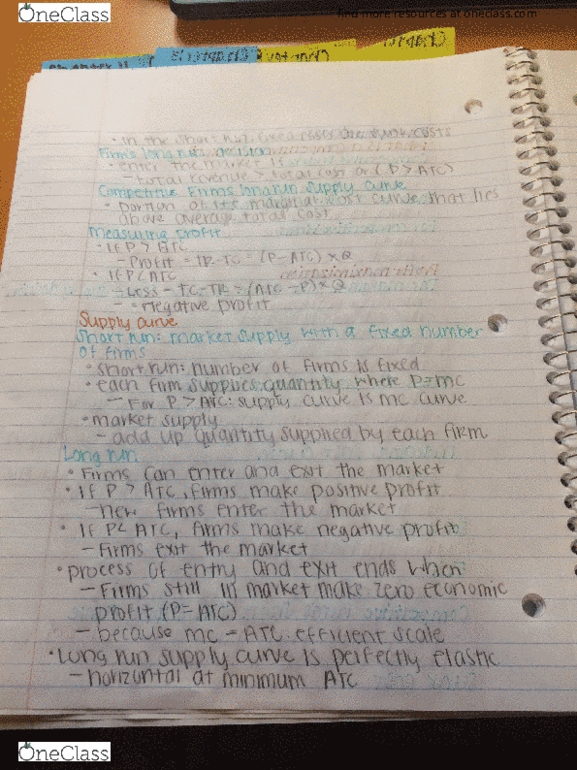 OneClass
find more resources at oneclass.com
Chapter 11
• In the short run, fixed costs are sunk costs
Firm's long run decision
• enter the market if
- total revenue > total cost or (P > ATC)
Competitive firms long run supply curve
• portion of its marginal cost curve that lies
above average total cost
Measuring profit
• If P > ATC
- Profit = TR - TC = (P - ATC) x Q
• If P < ATC
- Loss = TC - TR = (ATC - P) x Q
- negative profit
Supply curve
Short run: market supply with a fixed number
of firms
• short run: number of firms is fixed
• each firm supplies quantity where P=MC
- For P > AVC: supply curve is MC curve
• market supply
- add up quantity supplied by each firm
Long run
• Firms can enter and exit the market
• If P > ATC, firms make positive profit
- new firms enter the market
• If P< ATC, firms make negative profit
- Firms exit the market
• process of entry and exit ends when
- Firms still in market make zero economic
profit (P= ATC)
- because MC = ATC: efficient scale
• Long run supply curve is perfectly elastic
- horizontal at minimum ATC
OneClass